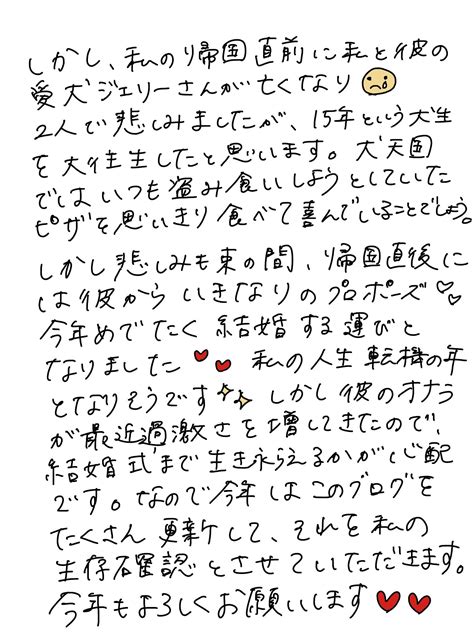 しかし、私の帰国直前に私と彼の
愛犬ジェリーさんが亡くなり😢
2人で悲しみましたが、15年という犬生
を大往生したと思います。犬天国
ではいつも盗み食いしようとしていた
ピザを思いきり食べて喜んでいることでしょう。
しかし悲しみも束の間、帰国直後に
は彼からいきなりのプロポーズ♡♡
今年めでたく結婚する運びと
なりました♥♥ 私の人生転機の年
となりそうです✨ しかし彼のオナラ
が最近過激さを増してきたので、
結婚式まで生きながらえるかが心配
です。なので今年はこのブログを
たくさん更新して、それを私の
生存確認とさせていただきます。
今年もよろしくお願いします♥♥